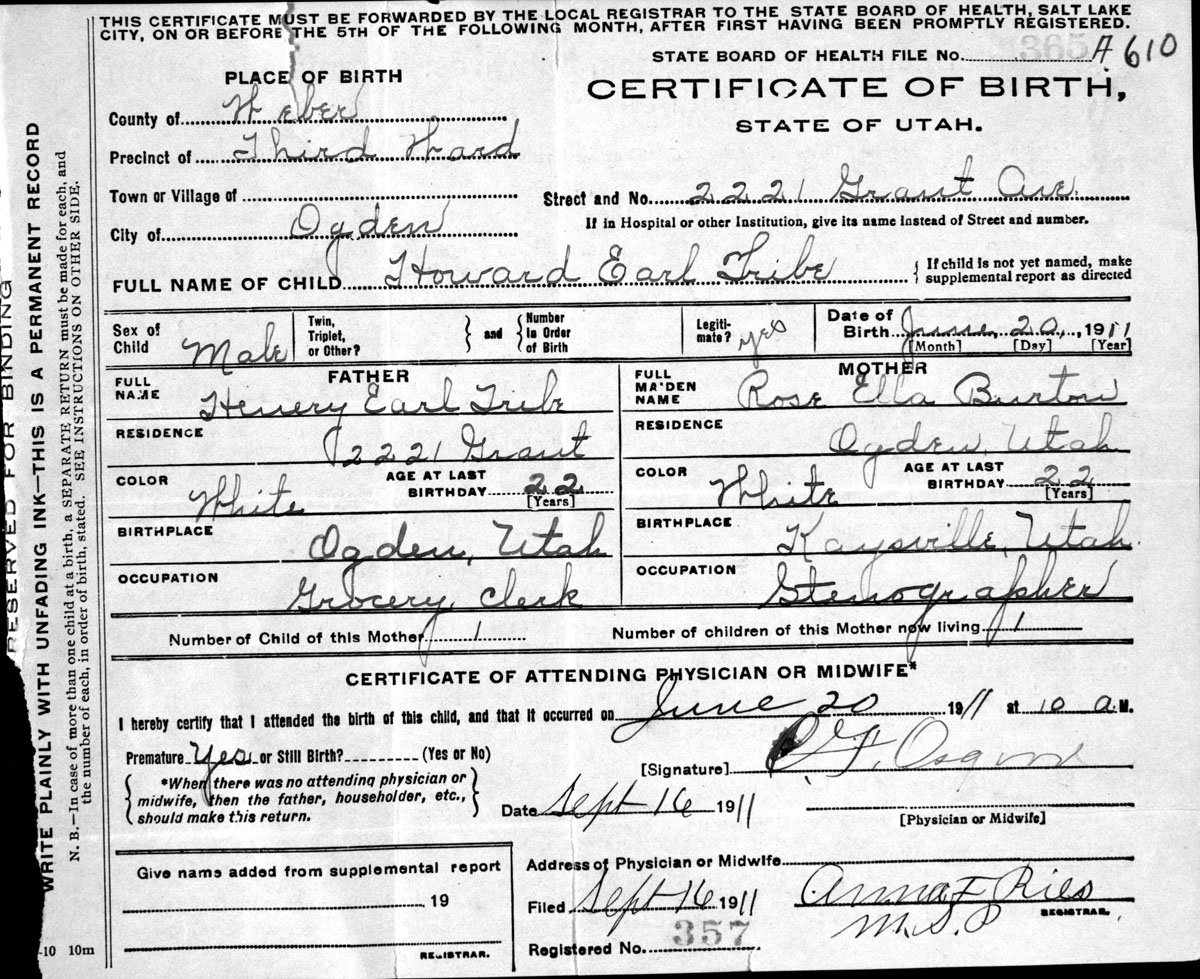 THIS CERTIFICATE MUST BE FORWARDED BY THE LOCAL REGISTRAR TO THE STATE BOARD OF HEALTH, SALT LAKE
CITY, ON OR BEFORE THE 5TH OF THE FOLLOWING MONTH, AFTER FIRST HAVING BEEN PROMPTLY REGISTERED.
STATE BOARD OF HEALTH FILE No. 365 A 610
PLACE OF BIRTH
CERTIFICATE OF BIRTH,
STATE OF UTAH.
County of Weber
Precinct of Third Ward
Town or Village of
Street and No. 2221 Grant Ave
If in Hospital or other Institution, give its name instead of Street and number.
City of Ogden
FULL NAME OF CHILD Howard Earl Tribe
{ If child is not yet named, make
supplemental report as directed
Sex of Child Male
Twin, Triplet, or Other? } and { Number in Order of Birth
Legiti-mate? yes
Date of Birth June 20, 1911
[Month] [Day] [Year]
FATHER
FULL NAME Henery Earl Tribe
RESIDENCE 2221 Grant
COLOR White
AGE AT LAST BIRTHDAY 22
[Years]
BIRTHPLACE Ogden, Utah
OCCUPATION Grocery Clerk
MOTHER
FULL MAIDEN NAME Rose Ella Burton
RESIDENCE Ogden, Utah
COLOR White
AGE AT LAST BIRTHDAY 22
[Years]
BIRTHPLACE Kaysville, Utah.
OCCUPATION Stenographer
Number of Child of this Mother 1
Number of children of this Mother now living 1
CERTIFICATE OF ATTENDING PHYSICIAN OR MIDWIFE*
I hereby certify that I attended the birth of this child, and that it occurred on June 20 1911 at 10 a.M.
Premature Yes or Still Birth? (Yes or No)
[Signature]
*When there was no attending physician or
midwife, then the father, householder, etc.,
should make this return.
Date Sept 16 1911
[Physician or Midwife]
Give name added from supplemental report
19
REGISTRAR.
Address of Physician or Midwife
Filed Sept 16 1911
Anna F Ries
M.S.P
REGISTRAR.
Registered No. 357
RESERVED FOR BINDING
WRITE PLAINLY WITH UNFADING INK—THIS IS A PERMANENT RECORD
N. B.—In case of more than one child at a birth, a SEPARATE RETURN must be made for each, and
the number of each, in order of birth, stated. SEE INSTRUCTIONS ON OTHER SIDE.
-10 10m